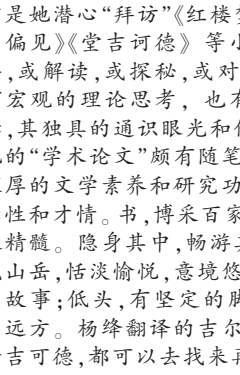 是她潜心“拜访”《红楼梦
偏见》《堂吉诃德》等小
，或解读，或探秘，或对
宏观的理论思考，也有
，其独具的通识眼光和
的“学术论文”颇有随笔
厚的文学素养和研究功
性和才情。书，博采百家
精髓。隐身其中，畅游其
山岳，恬淡愉悦，意境悠
故事；低头，有坚定的脚
远方。杨绛翻译的吉尔
吉可德，都可以去找来再